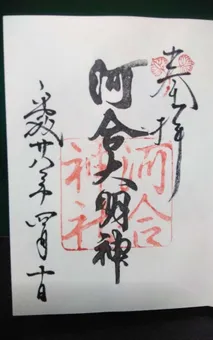 奉拝
河合大明神
河合神社
平成廿八年四月十日